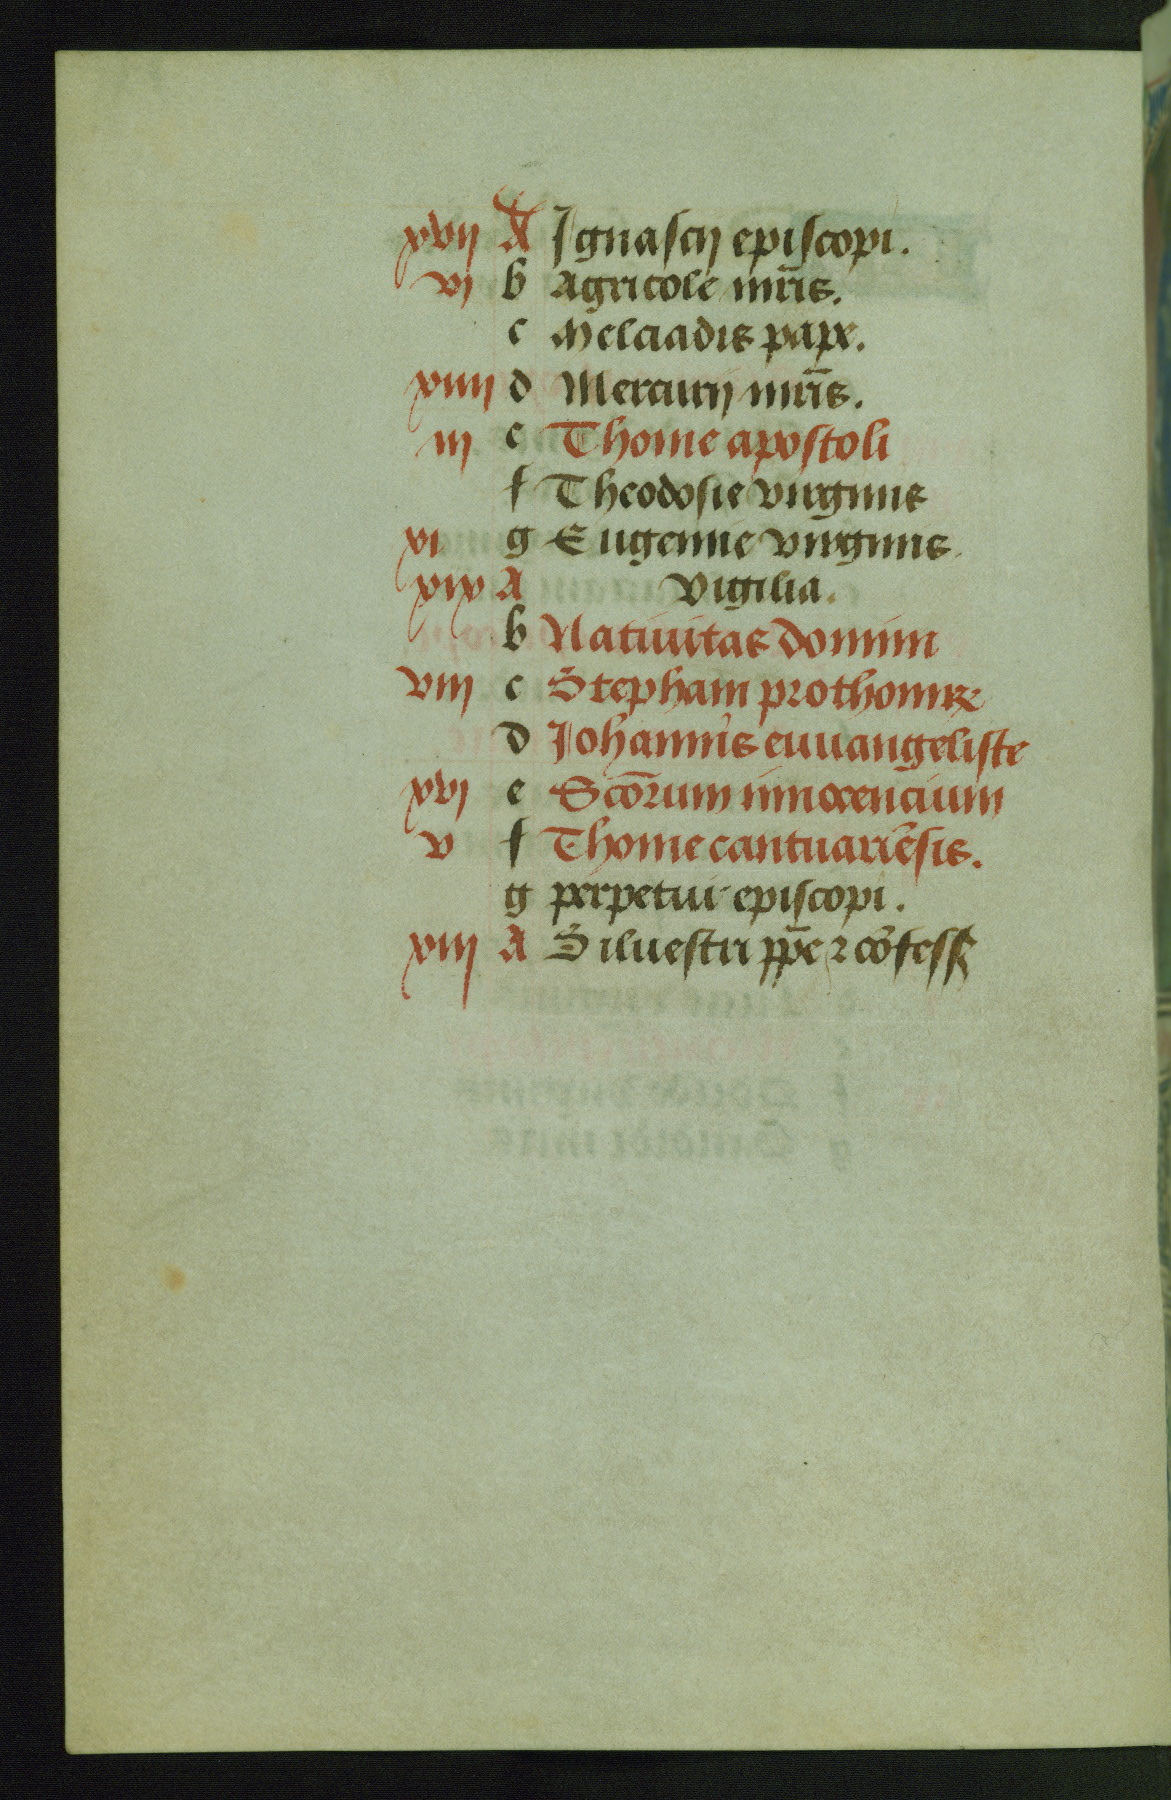 xvij A Ignascij episcopi.
vj b Agricole mr̄is.
c Melciadis pape.
xiiij d Mercurij mr̄is.
iij e Thome apostoli
f Theodosie virginis
xi g Eugenie virginis
xix A Vigilia.
b Nativitas domini
viij c Stephani prothomr̄
d Iohannis euuangeliste
xvj e Sc̄orum innocencium
v f Thome cantuariēsis.
g perpetui episcopi.
xiij A Siluestri pp̄e ⁊ cōfess